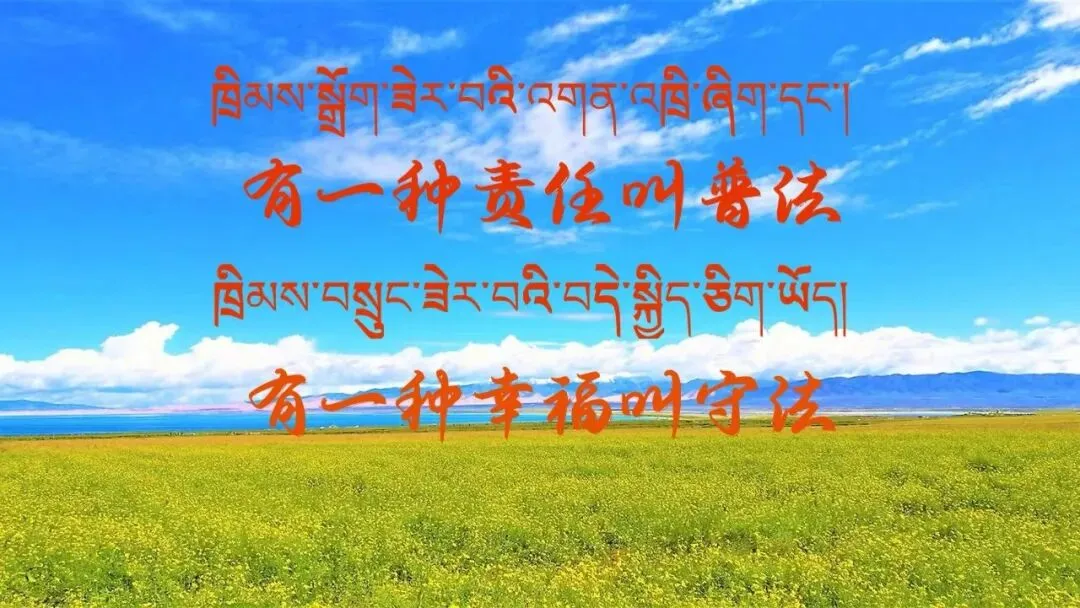 ཁྲིམས་སྒྲོག་ཟེར་བའི་འགན་འཁྲི་ཞིག་དང་།
有一种责任叫普法
ཁྲིམས་བསྲུང་ཟེར་བའི་བདེ་སྐྱིད་ཅིག་ཡོད།
有一种幸福叫守法